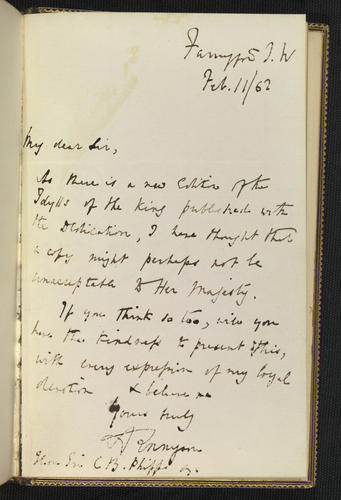 Farringford I. W
Feb. 11/62
My dear Sir,
As there is a new edition of the
Idylls of the King published with
the Dedication, I have thought that
a copy might perhaps not be
unacceptable to Her Majesty.
If you think so too, will you
have the kindness to present this,
with every expression of my loyal
devotion & believe me
Yours truly
A Tennyson
Honble Sir C. B. Phipps